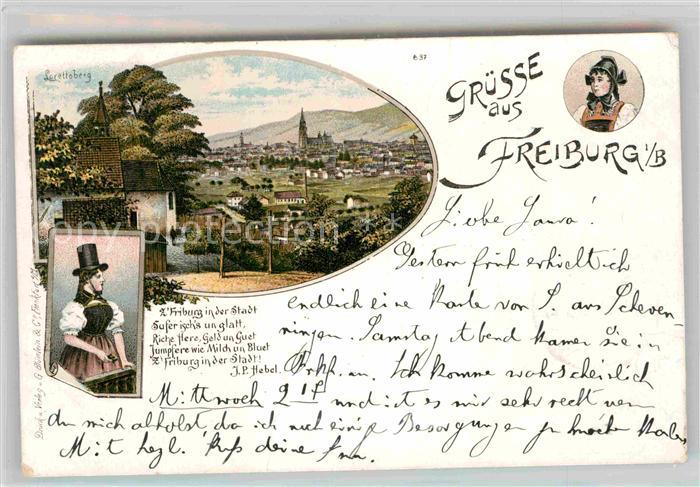 Lorettoberg
637
GRÜSSE
aus
FREIBURG i/B
Liebe Laura!
Gestern früh erhielt ich
endlich eine Karte von S. aus Scheven-
ningen. Samstag Abend kamen sie in
Frkf. an. Ich komme wahrscheinlich
Mittwoch 9 17 und ist es mir sehr recht wenn
du mich abholst da ich noch einige Besorgungen zu machen habe.
Mit hzgl. Kuß deine
Z'Friburg in der Stadt
Sufer isch's un glatt,
Richi Here, Geld un Guet
Jumpfere wie Milch un Bluet
Z'Friburg in der Stadt!
J.P. Hebel.
Druck u. Verlag v. G. Blümlein & Co. Frankfurt